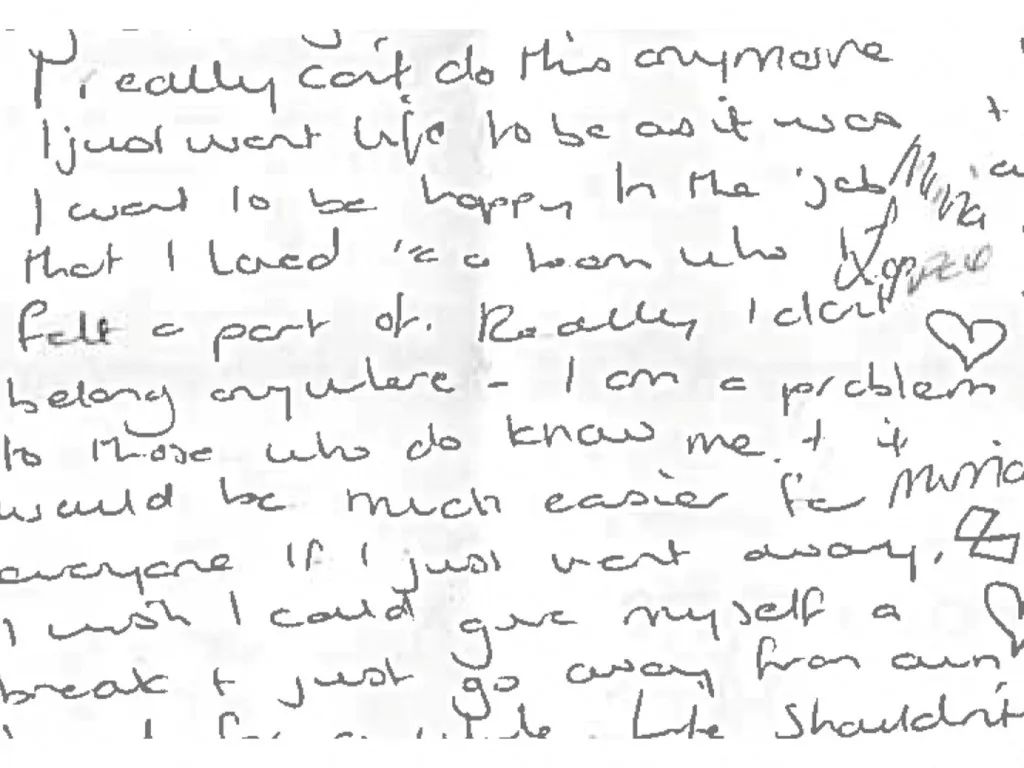 I really can't do this anymore
I just want life to be as it was +
I want to be happy In the job
that I loved in a team who I
felt a part of. Really I don't
belong anywhere - I am a problem
to those who do know me + it
would be much easier for
everyone If I just went away.
I wish I could give myself a
break + just go away from own
for a while. Life Shouldn't